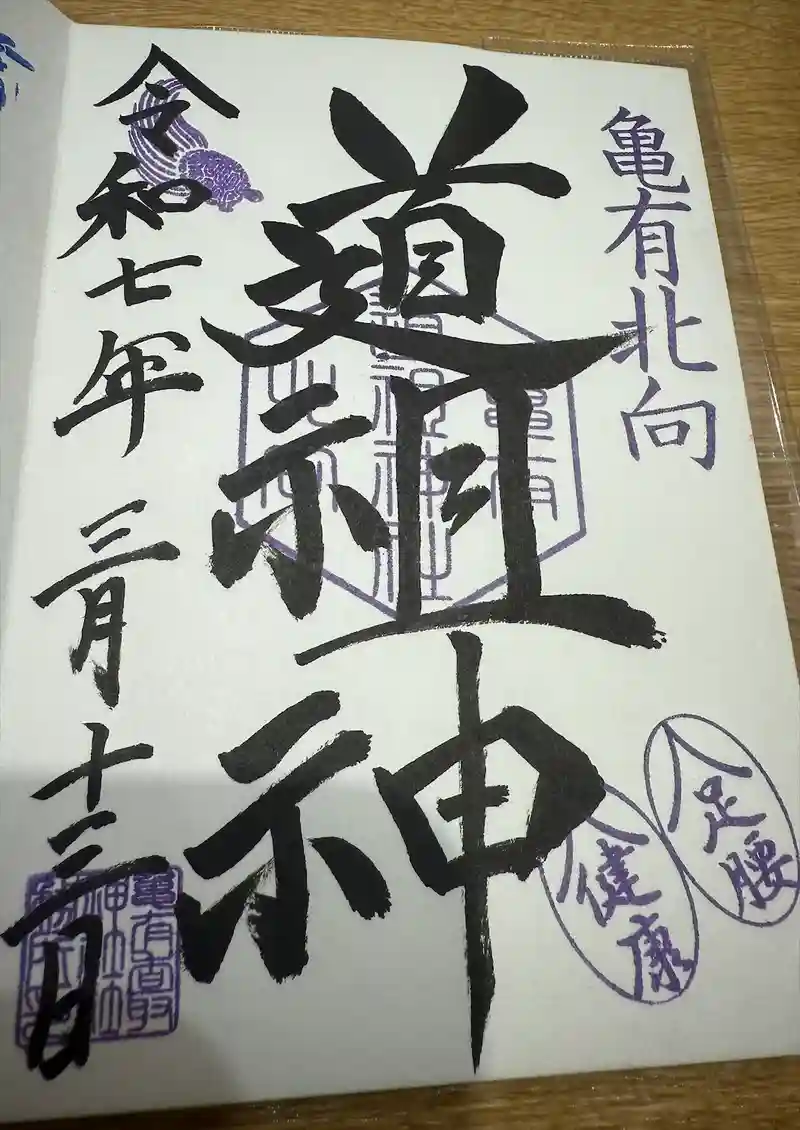 亀有北向
道祖神
令和七年三月十三日
足腰
健康
亀有
道祖神社
北向
亀有香取
神社社